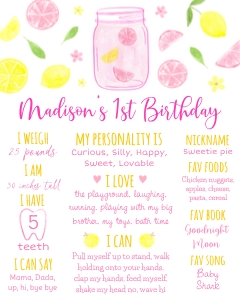 Madison's 1st Birthday
I WEIGH
25 pounds
I AM
30 inches tall
I HAVE
5
teeth
I CAN SAY
Mama, Dada,
up, hi, bye bye
MY PERSONALITY IS
Curious, Silly, Happy,
Sweet, Lovable
I LOVE
the playground, laughing,
running, playing with my big
brother, my toys, bath time
I CAN
Pull myself up to stand, walk
holding onto your hands,
clap my hands, feed myself,
shake my head no, wave hi
NICKNAME
Sweetie pie
FAV FOODS
Chicken nuggets,
apples, cheese,
pasta, cereal
FAV BOOK
Goodnight
Moon
FAV SONG
Baby
Shark